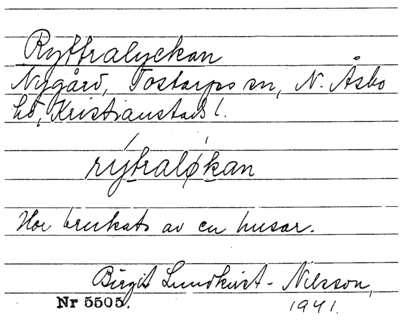 Ryttralyckan
Nygård, Tostarps sn, N. Åsbo
hd, Kristianstads l.
rýtralø̀kan
Har brukats av en husar.
Birgit Lundkvist-Nilsson,
Nr 5505. 1941.